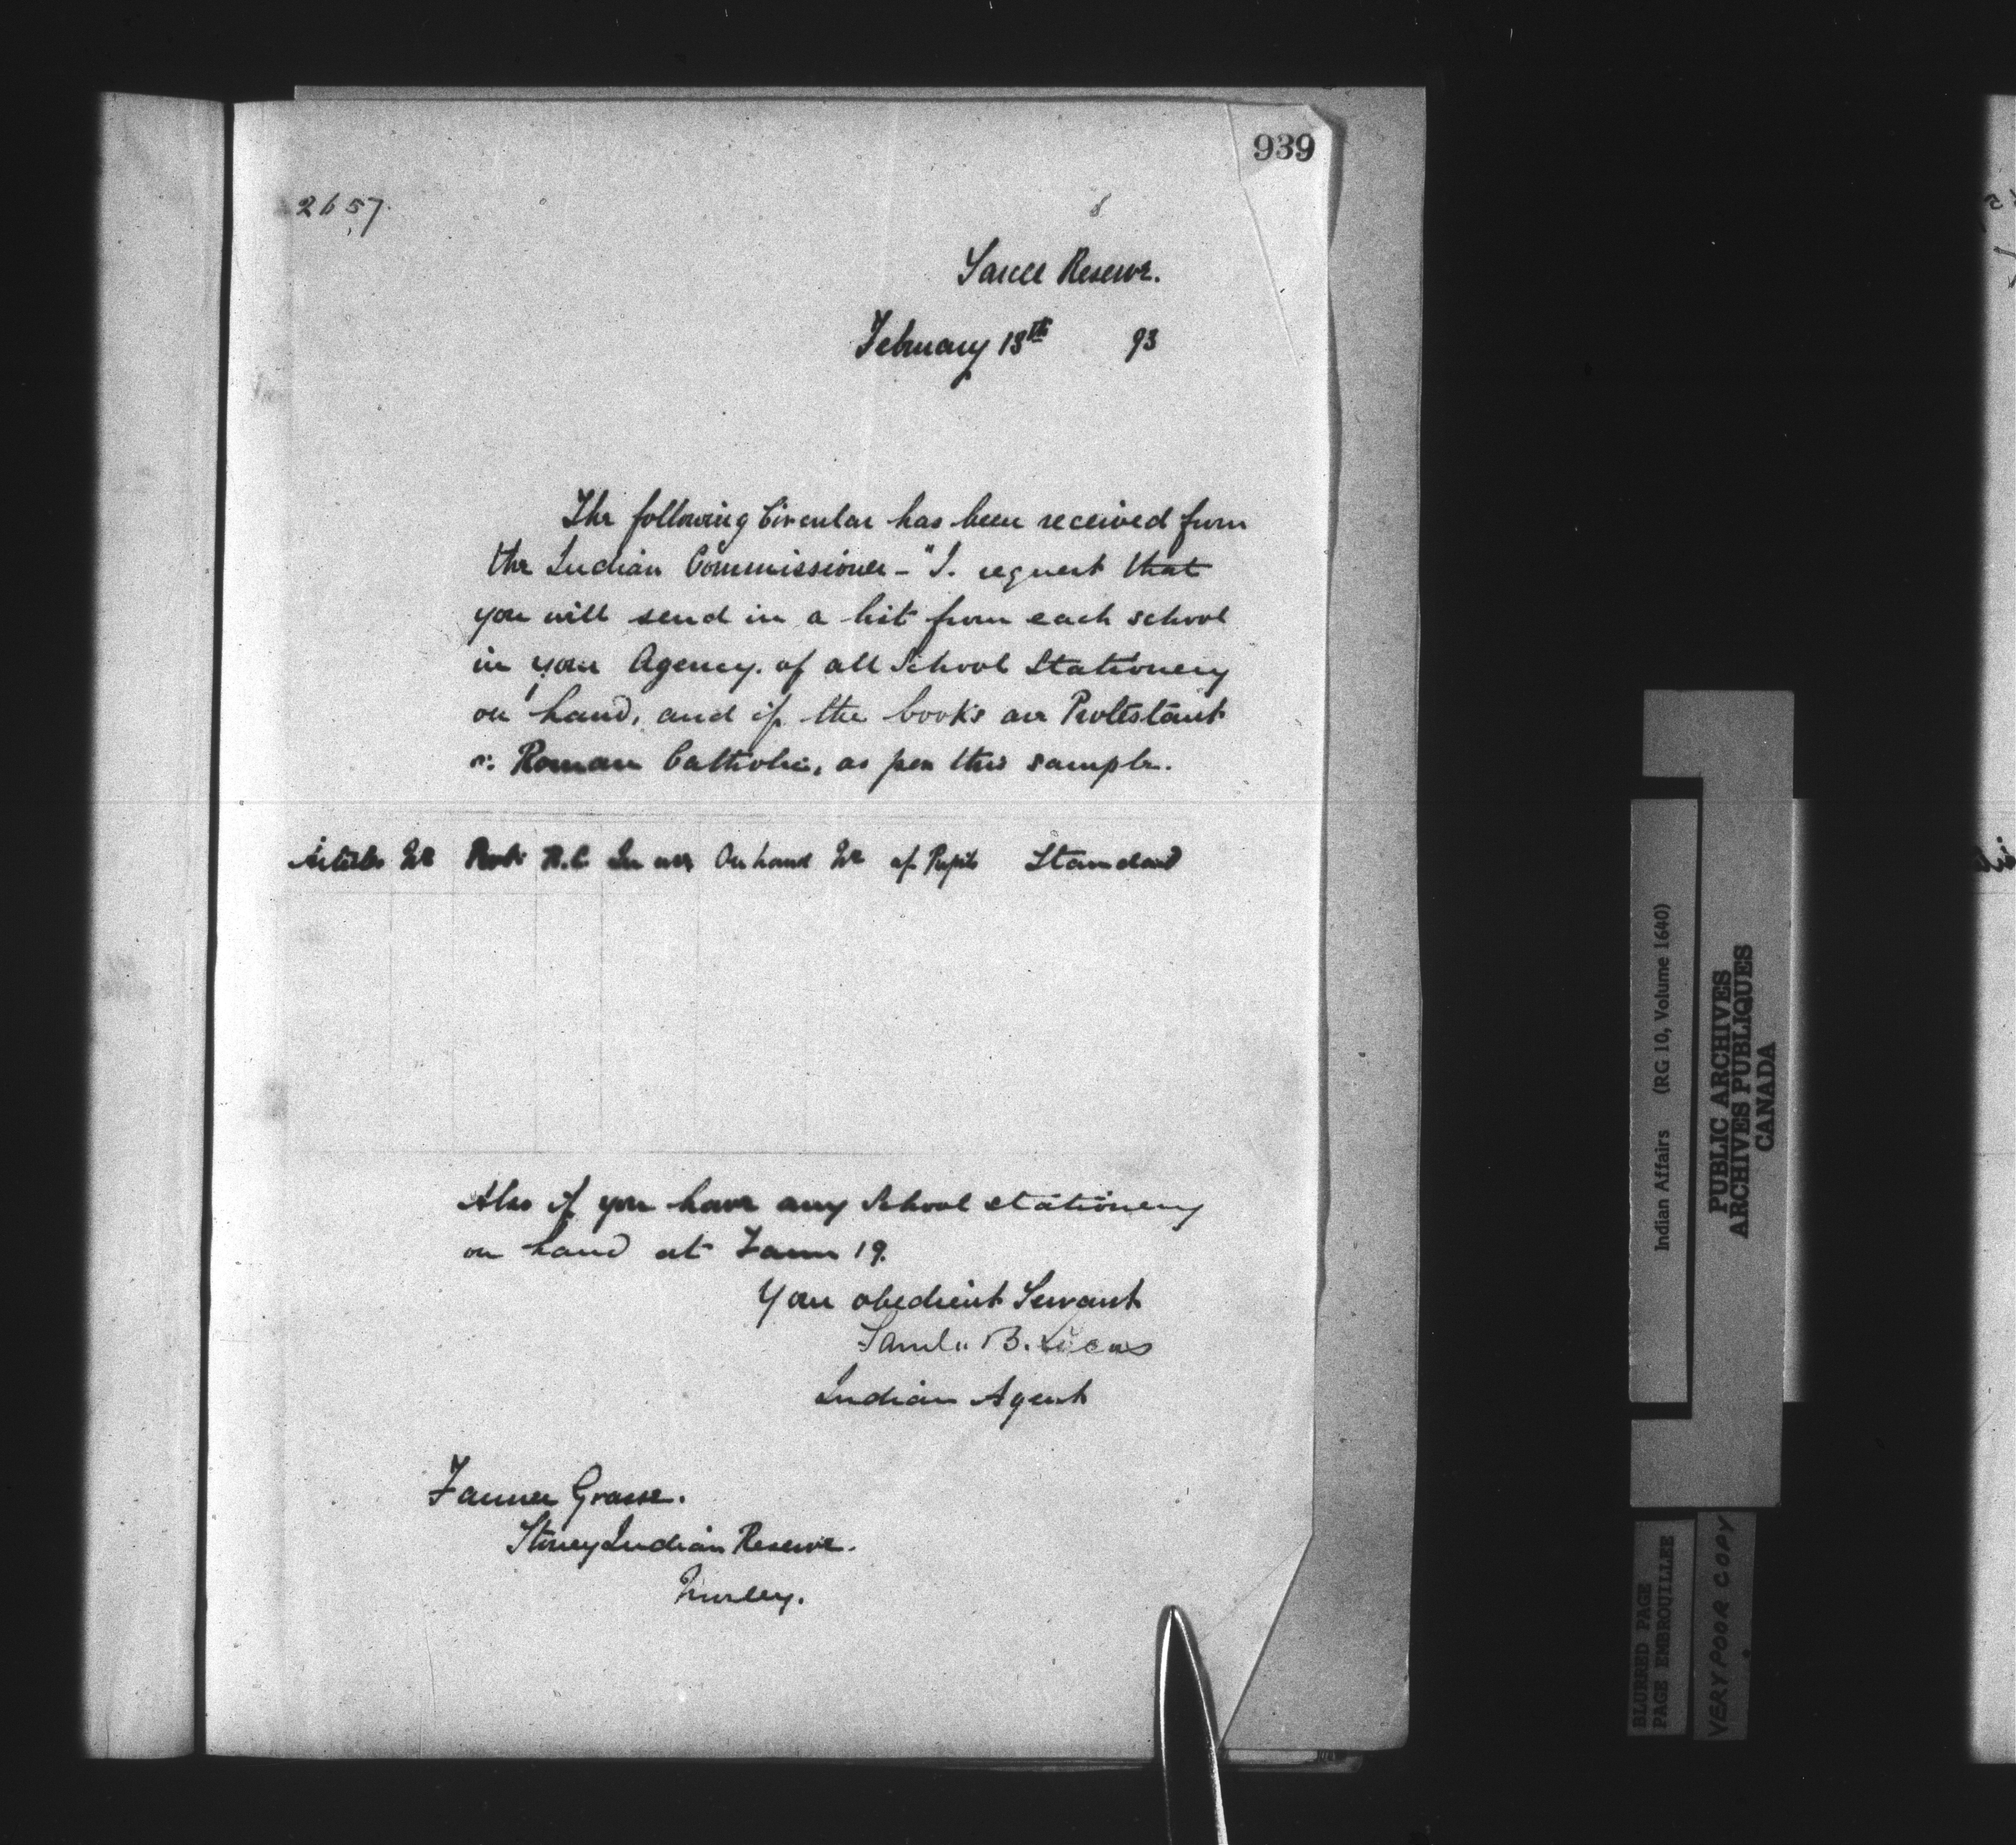 939
2657.
Sarcee Reserve.
February 13th 93
The following Circular has been received from
the Indian Commissioner - "I. request that
you will send in a list from each school
in your Agency. of all School Stationery
on hand, and if the books are Protestant
or Roman Catholic, as per this sample.
Articles No Prot. R.C In use On hand No of Pupils Standard
Also if you have any School stationery
on hand at Farm 19.
Your obedient Servant
Saml. B. Lucas
Indian Agent
Farmer Grasse.
Stoney Indian Reserve.
Morley.
Indian Affairs (RG 10, Volume 1640)
PUBLIC ARCHIVES
ARCHIVES PUBLIQUES
CANADA
BLURRED PAGE
PAGE EMBROUILLEE
VERY POOR COPY